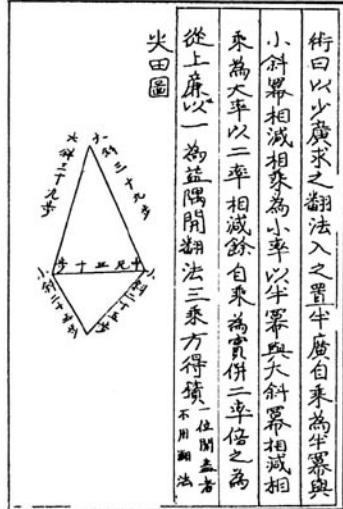 術曰以少廣求之翻法入之置半廣自乘為半冪與
小斜冪相減相乘為小率以半冪與大斜冪相減相
乘為大率以二率相減餘自乘為實併二率倍之為
從上廉以一為益隅開翻法三乘方得積一位開盡者
不用翻法
尖田圖
大斜三十九步
小斜三十九步
中廣三十步
小斜二十五步
小斜二十五步